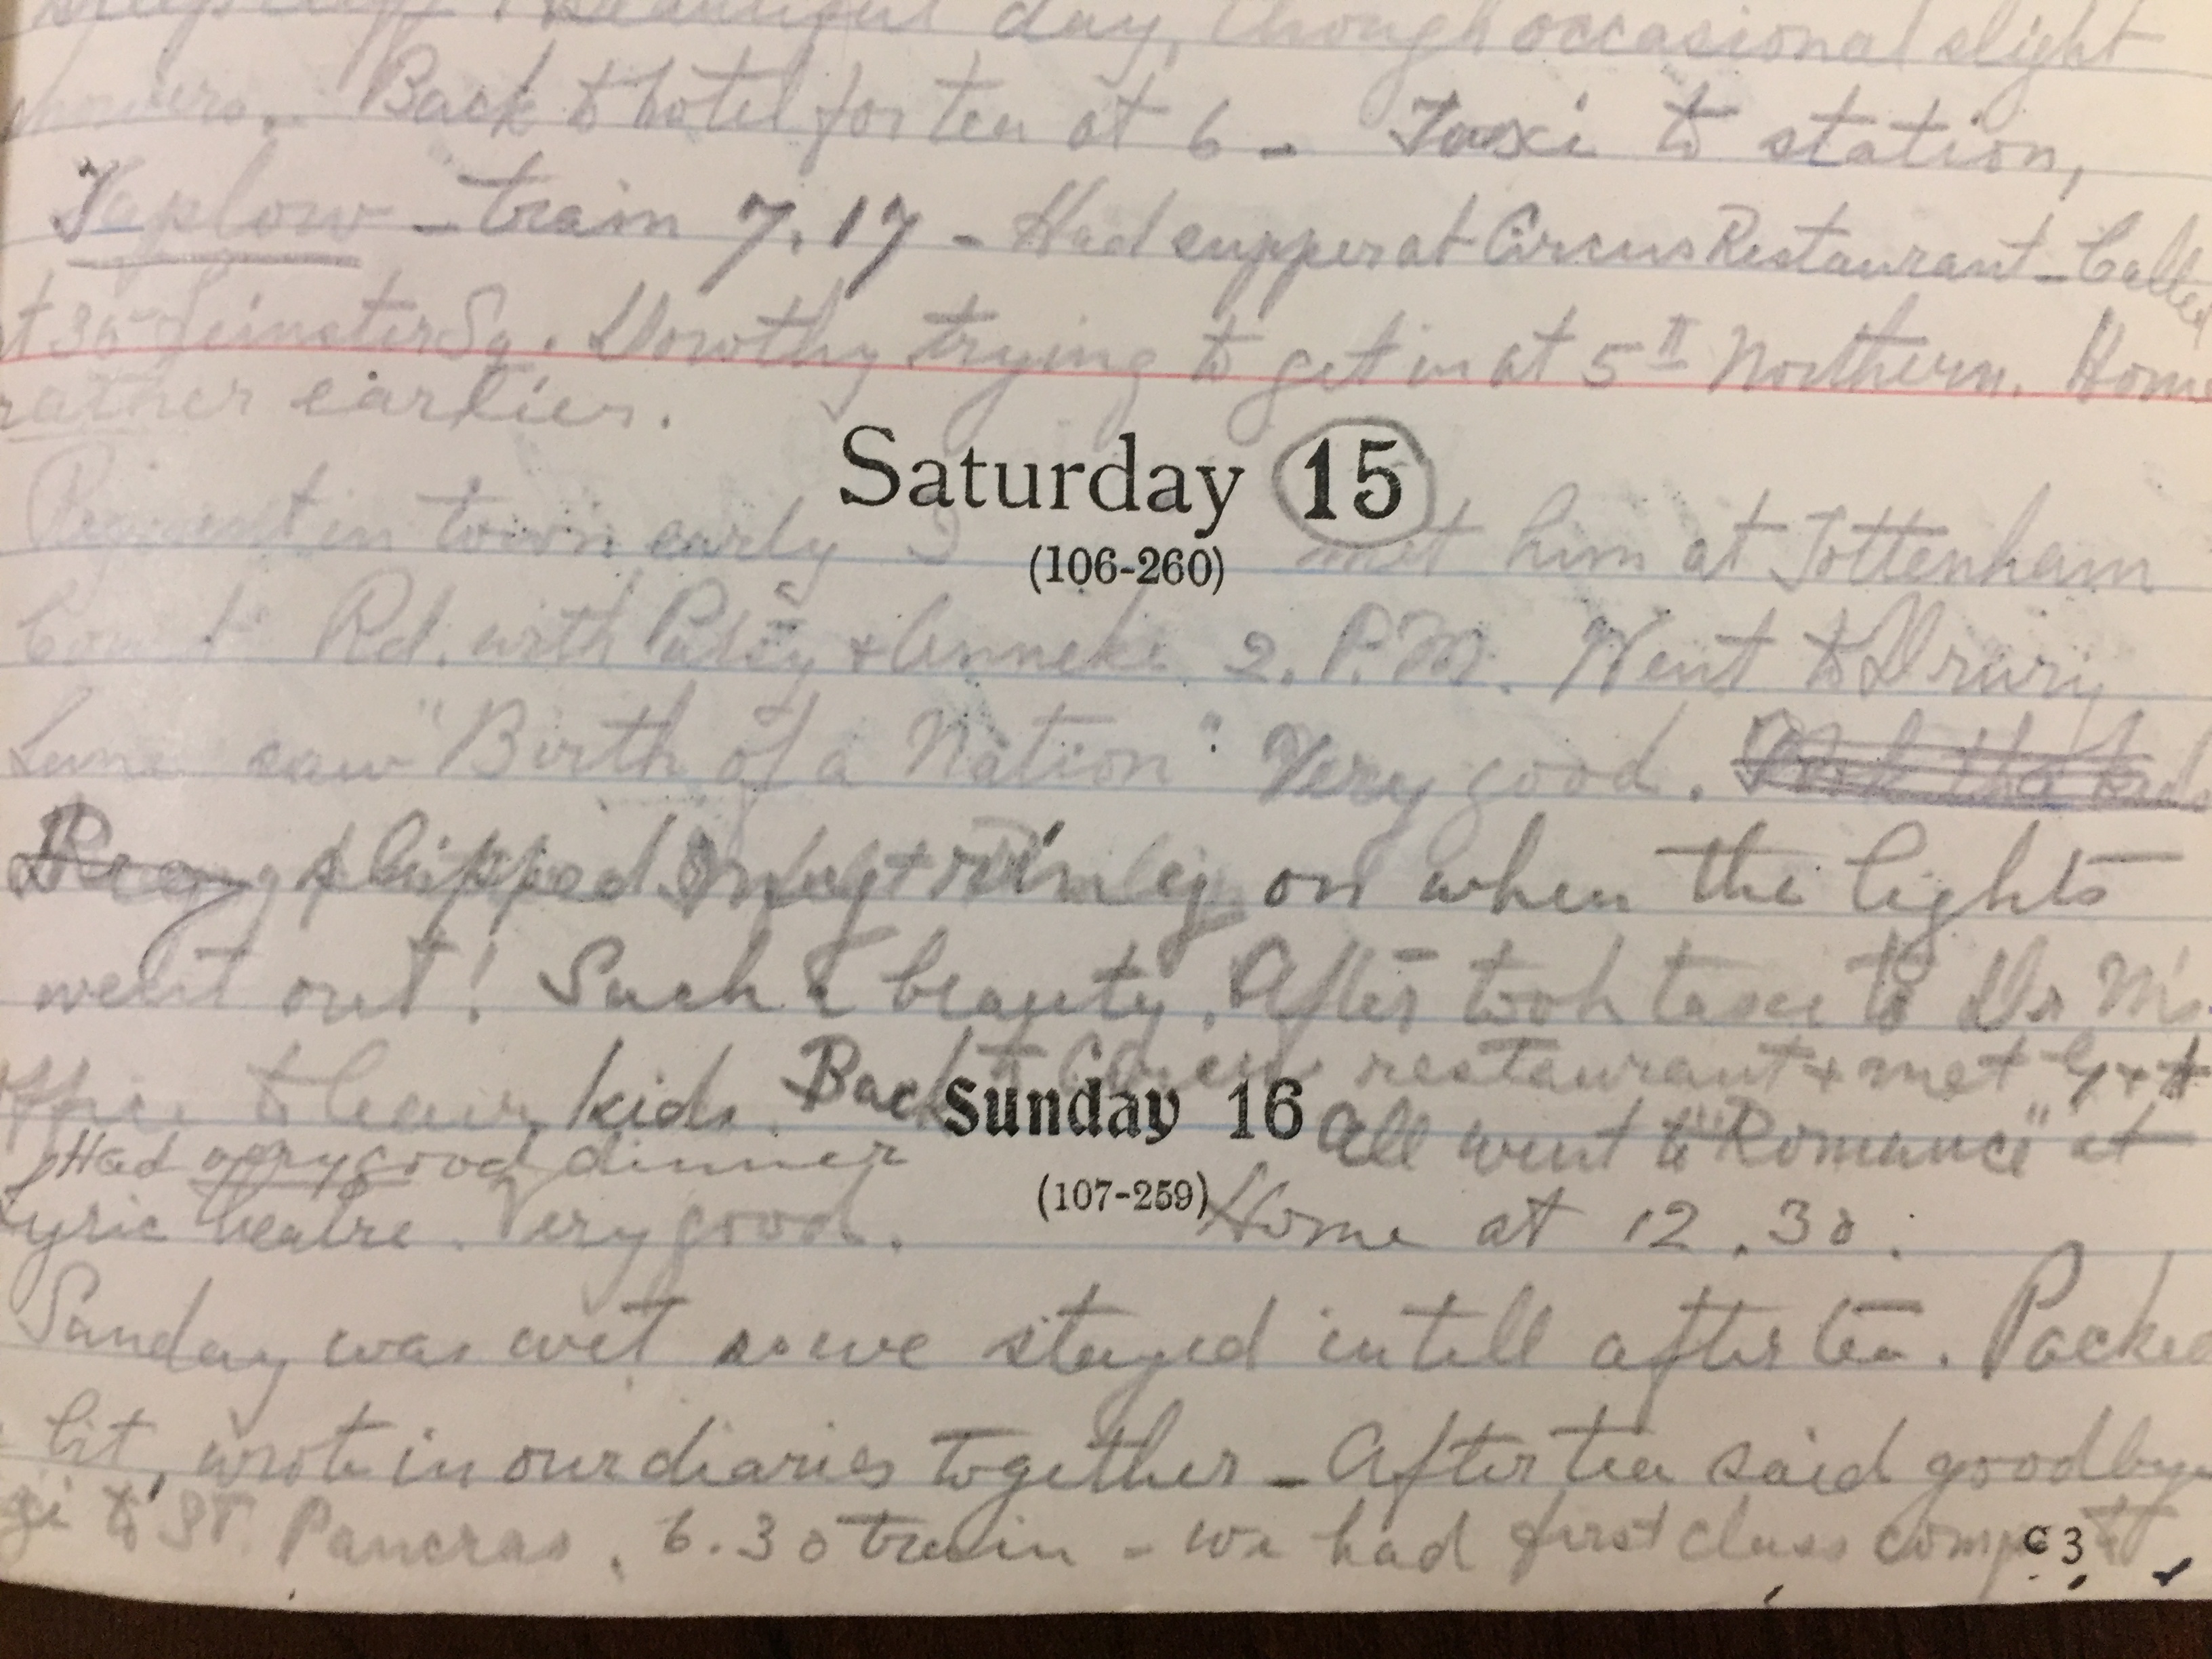 beautiful day, though occasional slight
showers. Back to hotel for tea at 6 - Taxi to station,
Taplow - train 7.17 - Had supper at Circus Restaurant - Called
at 36 Leinster Sq. Dorothy trying to get in at 5th Northern. Home
rather earlier.
Saturday 15
(106-260)
in town early I met him at Tottenham
Court Rd. with Patsy & Anneke 2. P.M. Went to Drury
Lane saw "Birth of a Nation" Very good.
Reg slipped my ring on when the lights
went out! Such a beauty. After took taxi to Dr M's
office to leave kids. Back to Circus restaurant & met G & H
Sunday 16
Had very good dinner All went to "Romance" at
(107-259)
Lyric theatre. Very good. Home at 12.30.
Sunday was wet so we stayed in till after tea. Packed
bit, wrote in our diaries together - After tea said goodbye
to St. Pancras. 6.30 train - we had first class compt